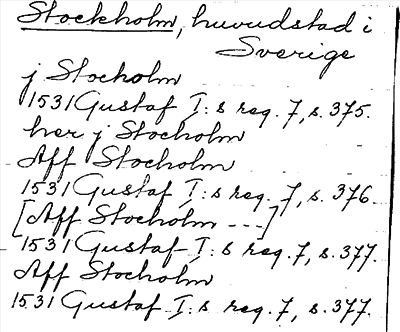 Stockholm, huvudstad i
Sverige
j Stocholm
1531 Gustaf I:s reg. 7, s. 375.
her j Stocholm
Aff Stocholm
1531 Gustaf I:s reg. 7, s. 376.
[Aff Stocholm ---]
1531 Gustaf I:s reg. 7, s. 377.
Aff Stocholm
1531 Gustaf I:s reg. 7, s. 377.